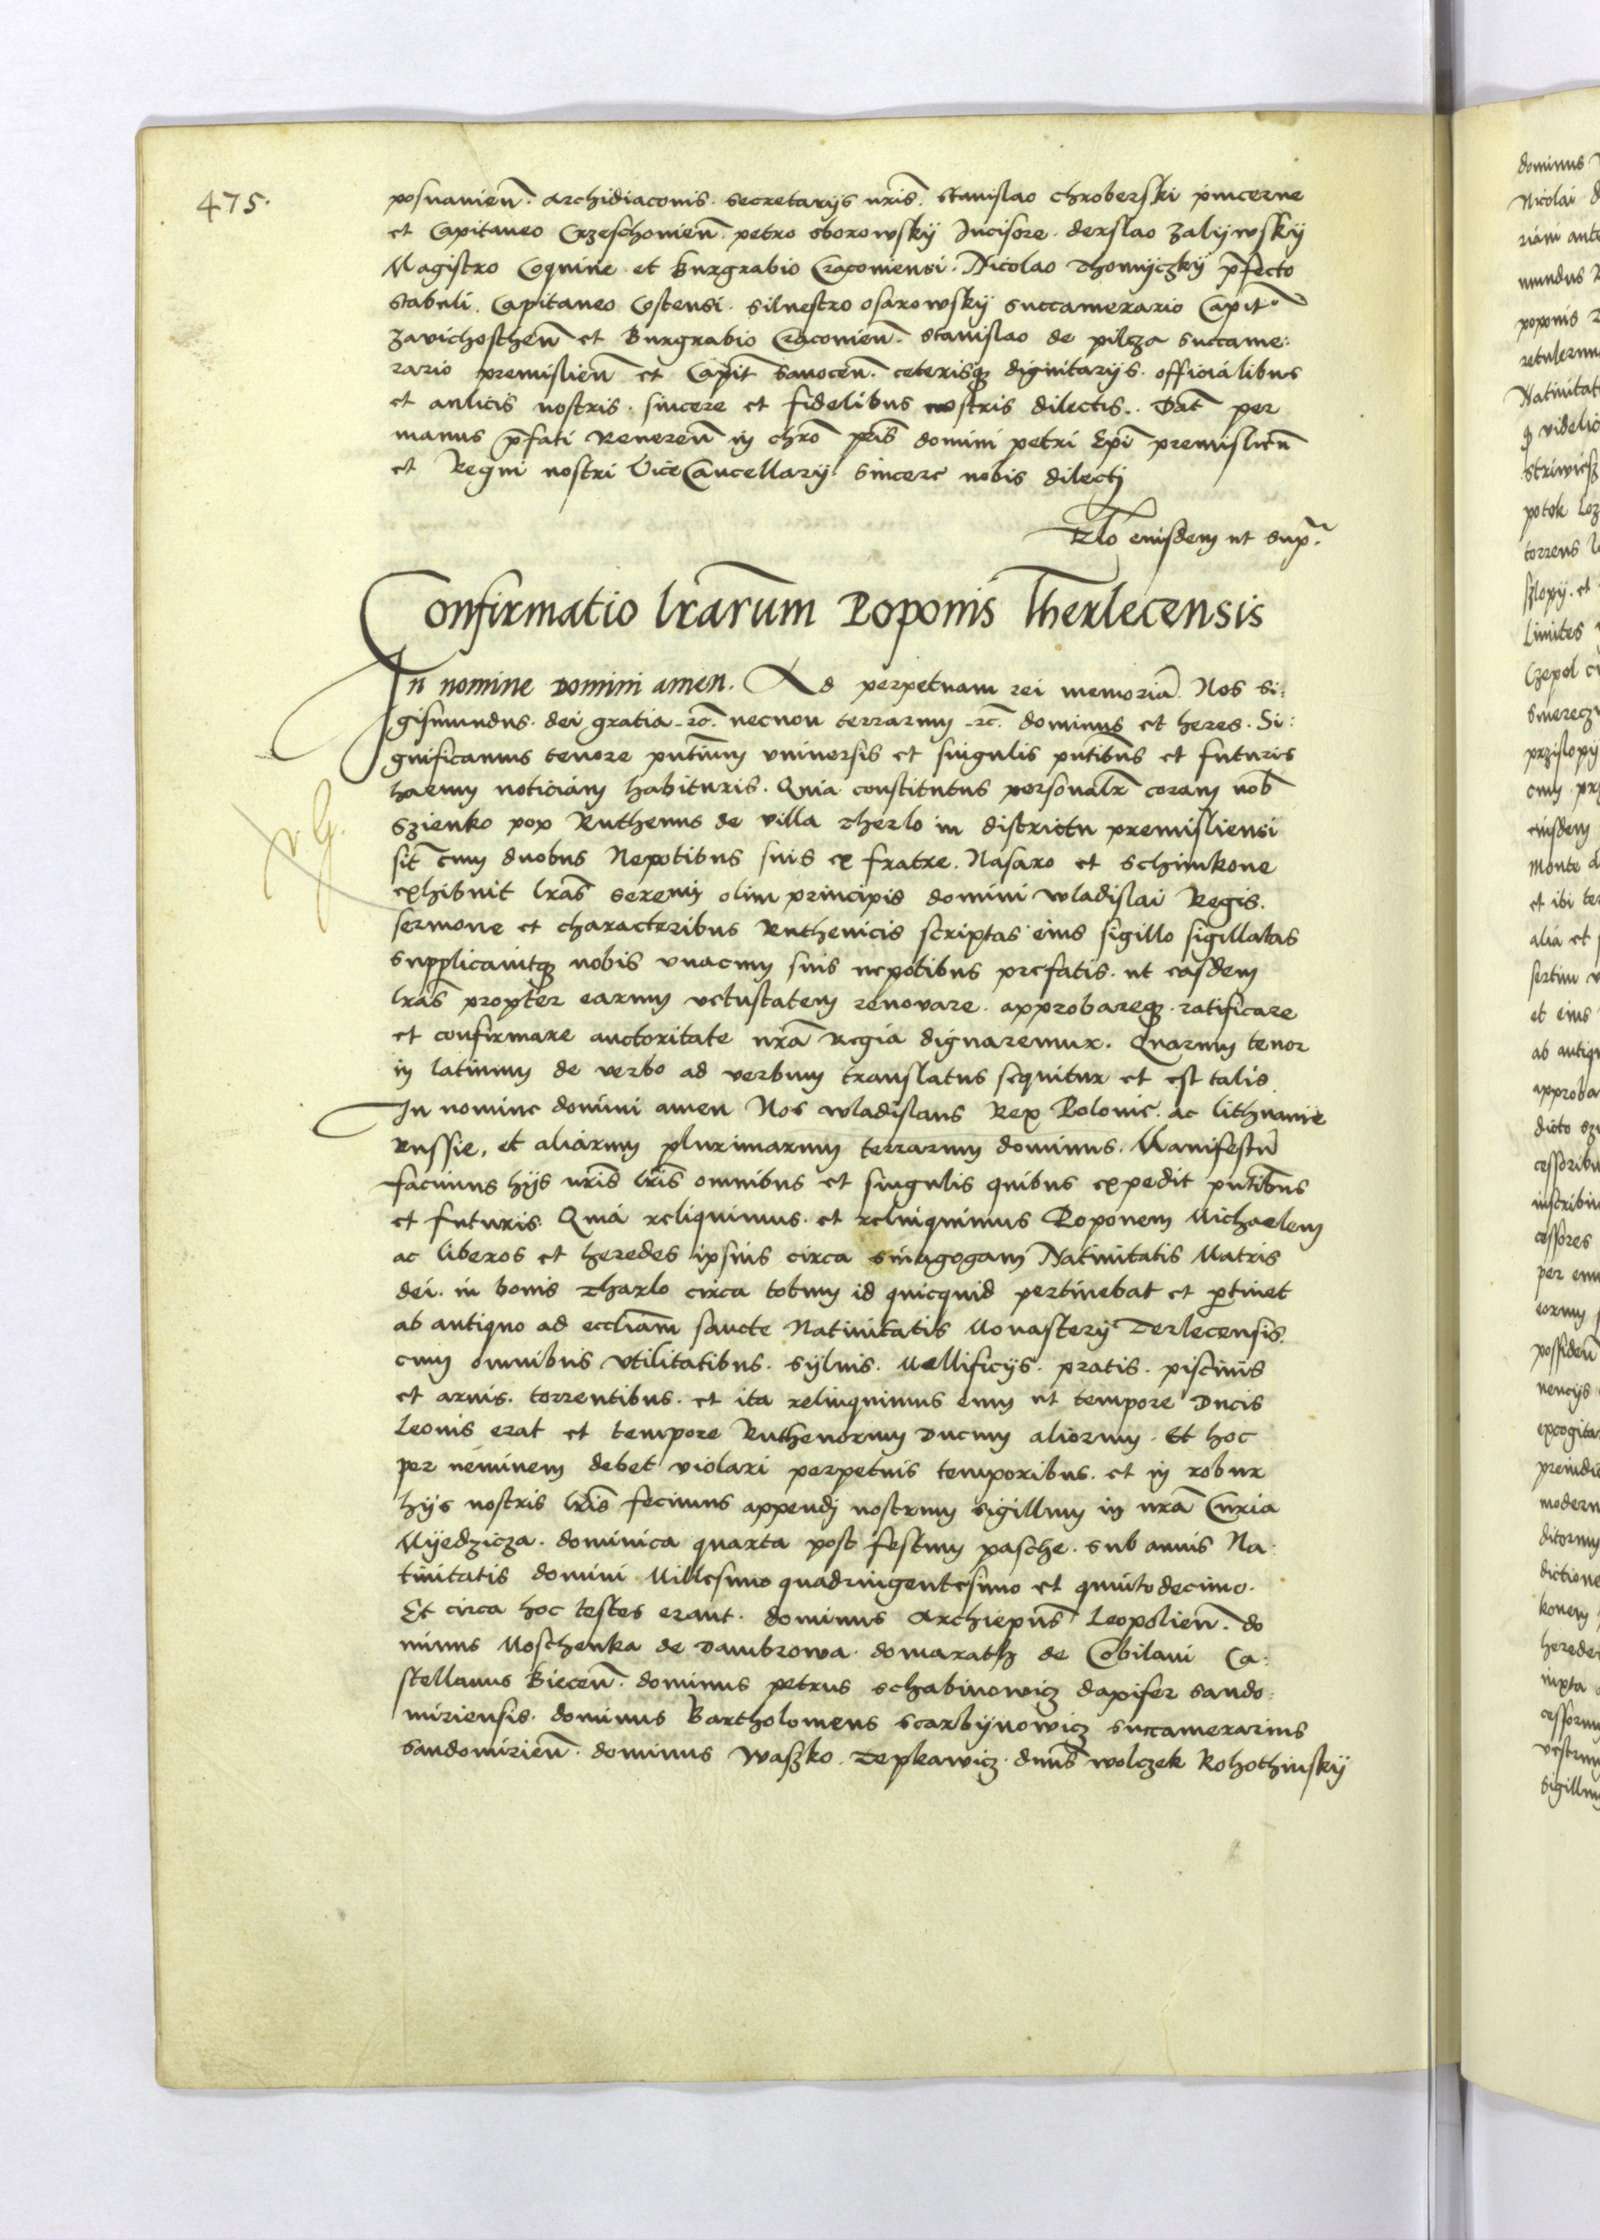 475.
posnanieñ. archidiaconis. secretarijs nr̃is. Stanislao Chroberski pincerne
et Capitaneo Crzeschovieñ. petro oborowskÿ Incisore. derslao Zalÿwskÿ
Magistro Coquine et Burgrabio Cracoviensi. Nicolao Thomÿczkÿ p̃fecto
Stabuli. Capitaneo Costensi. Silvestro osarowskÿ succamerario Capit.
Zavichosteñ et Burgrabio Cracovieñ. Stanislao de pilcza succame:
rario premislieñ et Capit̃ Sanoceñ. ceterisq; dignitarijs. officialibus
et aulicis nostris. sincere et fidelibus nostris dilectis. Dat̃ per
manus p̃fati Revereñ in chr̃o pr̃is domini petri Ep̃i premislieñ
et Regni nostri ViceCancellarij. sincere nobis dilectj
Rl̃o eiusdem ut sup̃.
Confirmatio lr̃arum Poponis Therlecensis
In nomine Domini amen. Ad perpetuam rei memoriã. Nos Si:
gismundus. dei gratia. rc̃. necnon terrarum. rc̃. dominus et heres. Si:
gnificamus tenore pñtium universis et singulis pñtibus et futuris
harum noticiam habituris. Quia constitutus personalr̃ coram nob̃
Szienko pop Ruthenus de villa Therlo in districtu premisliensi
sit̃ cum duobus Nepotibus suis ex fratre. Nasaro et Schimkone
exhibuit lr̃as serenis̃ olim principis domini wladislai Regis.
sermone et characteribus Ruthenicis scriptas eius sigillo sigillatas
supplicavitq; nobis unacum suis nepotibus prefatis. ut easdem
lr̃as propter earum vetustatem renovare. approbareq; ratificare
et confirmare auctoritate nr̃a regia dignaremur. Quarum tenor
in latinum de verbo ad verbum translatus sequitur et est talis.
In nomine domini amen Nos wladislaus Rex Polonie. ac lithuanie
Russie. et aliarum plurimarum terrarum dominus. Manifestũ
facimus hijs nr̃is lr̃is omnibus et singulis quibus expedit pñtibus
et futuris. Quia reliquimus. et relinquimus Poponem Michaelem
ac liberos et heredes ipsius circa sinagogam Nativitatis Matris
dei. in bonis Tharlo circa totum id quicquid pertinebat et p̃tinet
ab antiquo ad eccliam̃ sancte Nativitatis Monasterij Terlecensis.
cum omnibus utilitatibus. sylvis. Mellificijs. pratis. piscinis
et arvis. torrentibus. et ita relinquimus eum ut tempore Ducis
Leonis erat et tempore Ruthenorum Ducum aliorum. Et hoc
per neminem debet violari perpetuis temporibus. et in robur
hijs nostris lr̃is fecimus appendj nostrum sigillum in nr̃a Curia
Mÿedzicza. dominica quarta post festum pasche. sub annis Na:
tivitatis domini Millesimo quadringentesimo et quintodecimo.
Et circa hoc testes erant. dominus Archiepũs Leopolieñ. do
minus Moschenka de Dambrowa. domarath de Cobilani Ca:
stellanus Bieceñ. dominus petrus schabinowicz dapifer sando:
miriensis. dominus Bartholomeus scarbÿnowicz succamerarius
Sandomirieñ. dominus Waszko Tepkawicz. dñus wolczek Rohothinskÿ